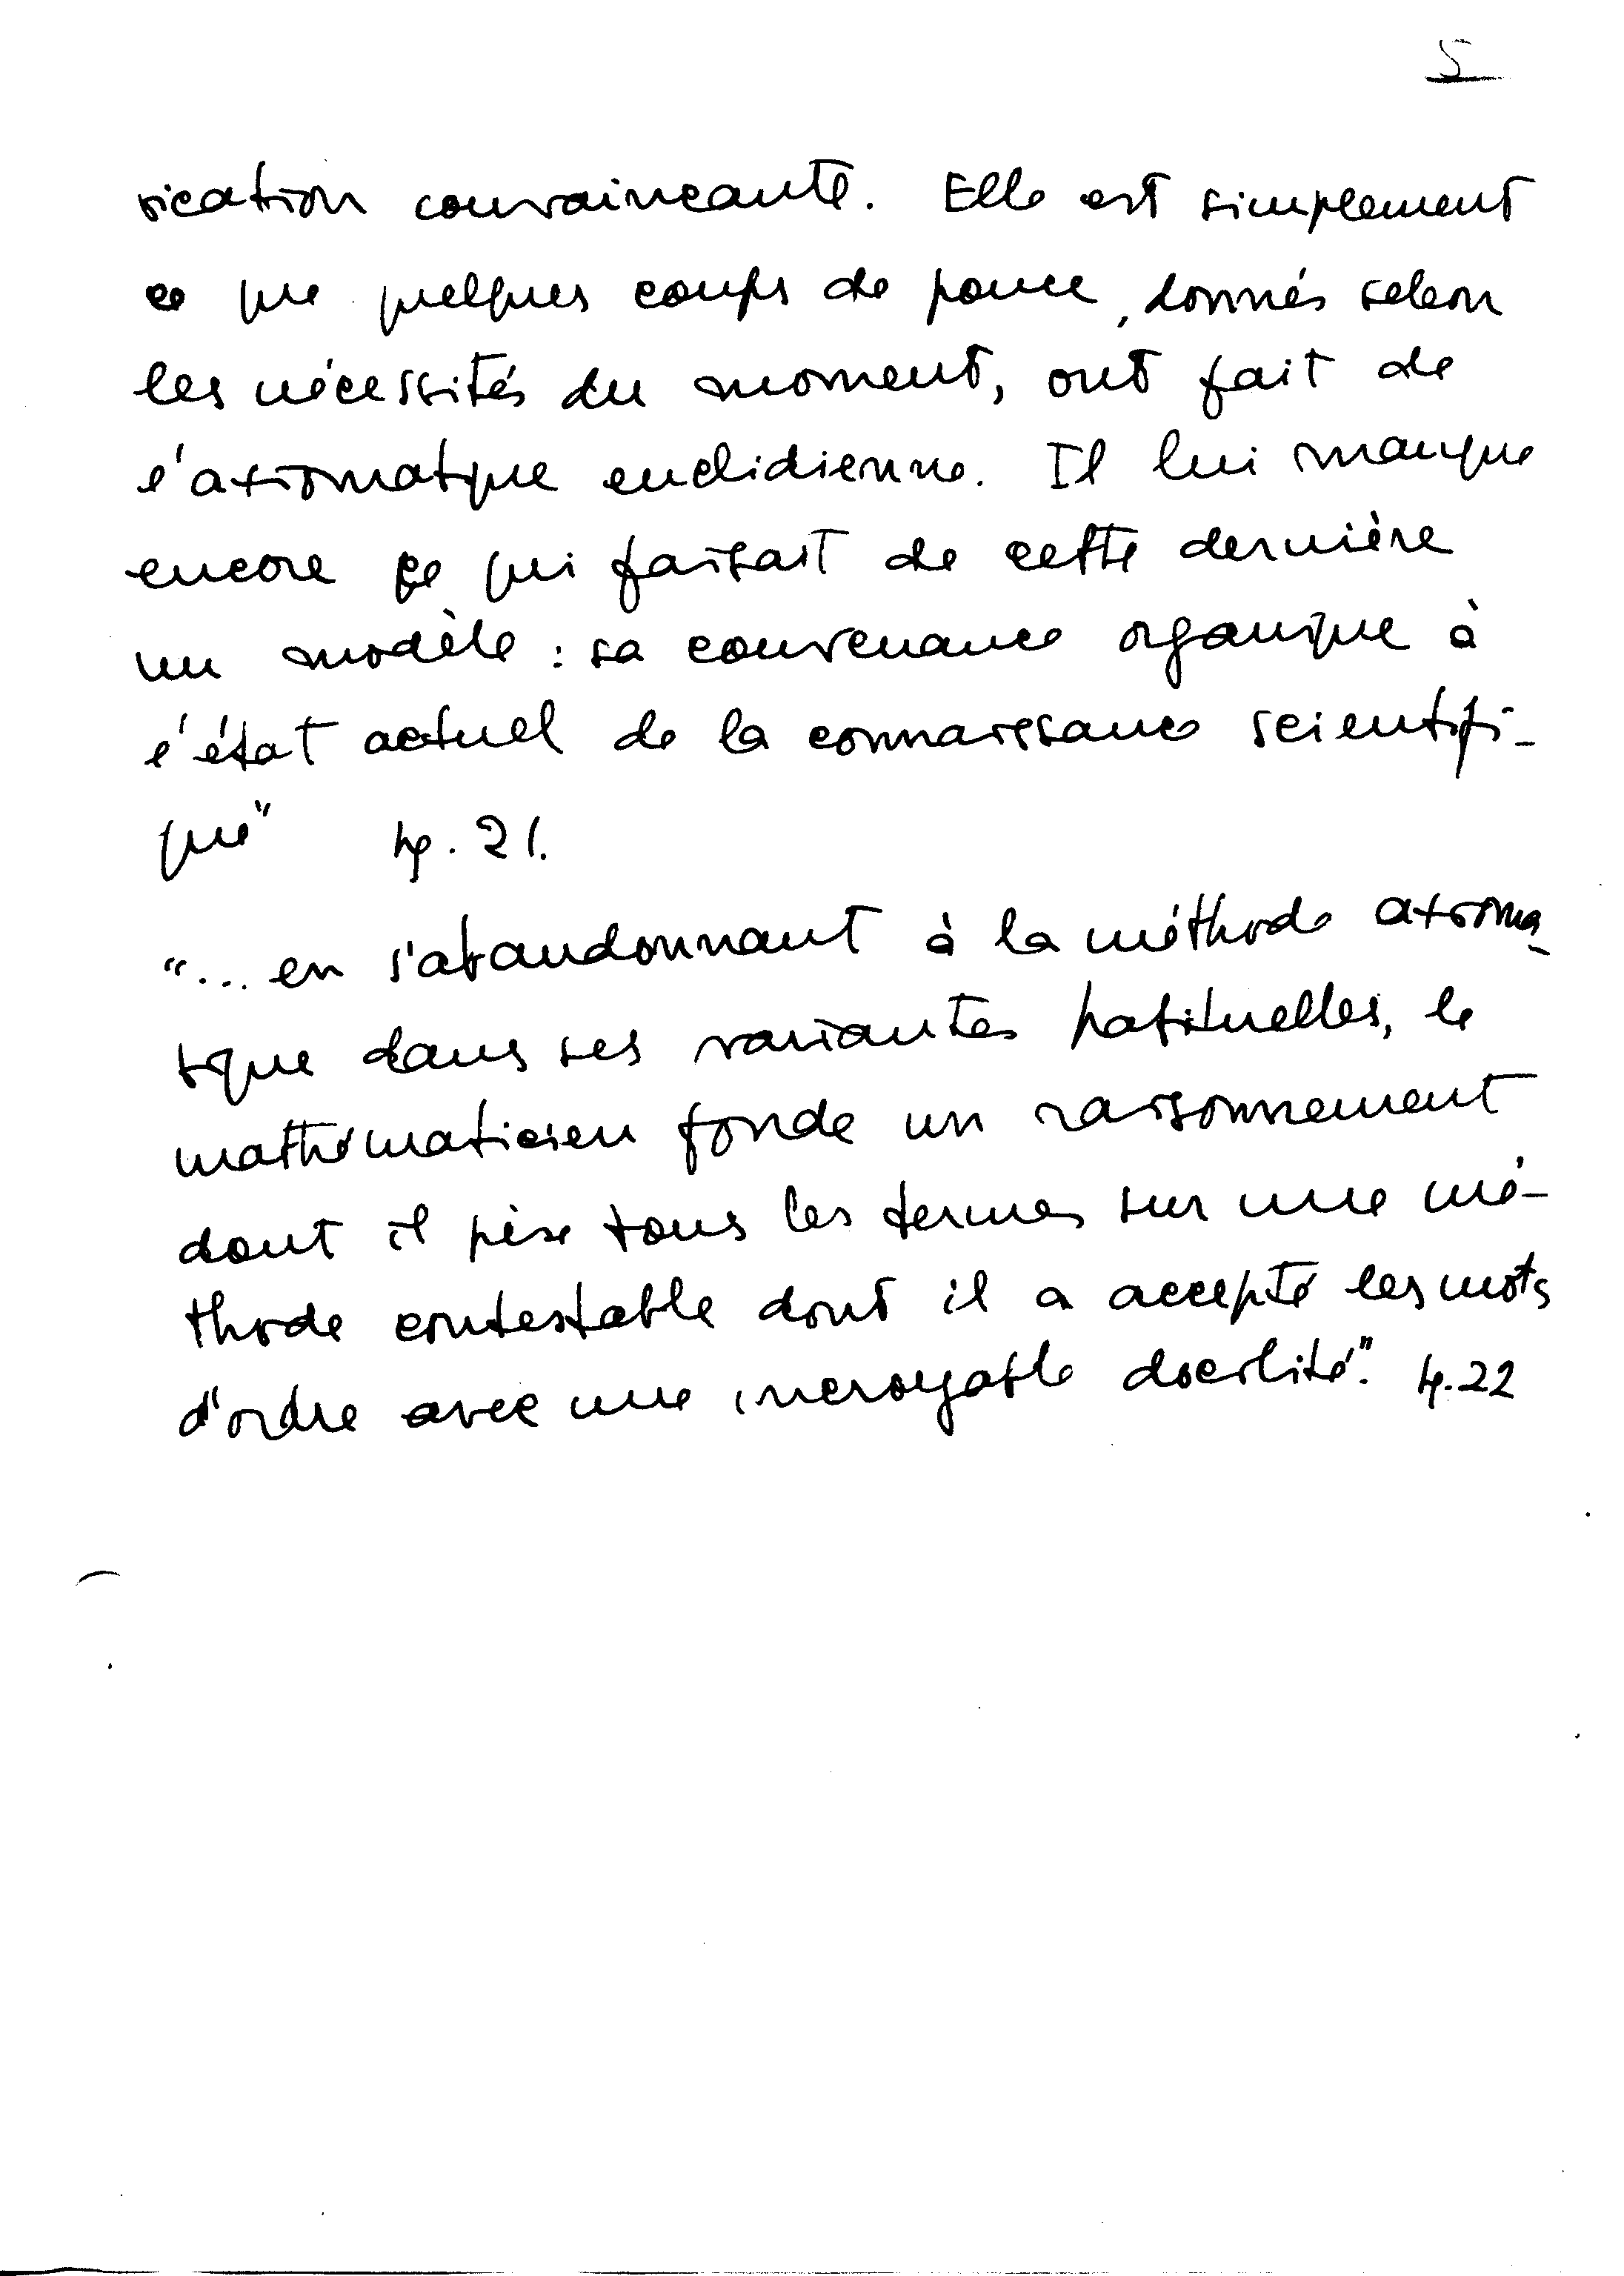 5
rication convaincante. Elle est simplement
ce que quelques coups de pouce, donnés selon
les nécessités du moment, ont fait de
l'axiomatique euclidienne. Il lui manque
encore ce qui faisait de cette dernière
un modèle : sa convenance organique à
l'état actuel de la connaissance scientifi-
que" p. 21.
"... en s'abandonnant à la méthode axioma-
tique dans ses variantes habituelles, le
mathématicien fonde un raisonnement
dont il pèse tous les termes sur une mé-
thode contestable dont il a accepté les mots
d'ordre avec une incroyable docilité". p. 22